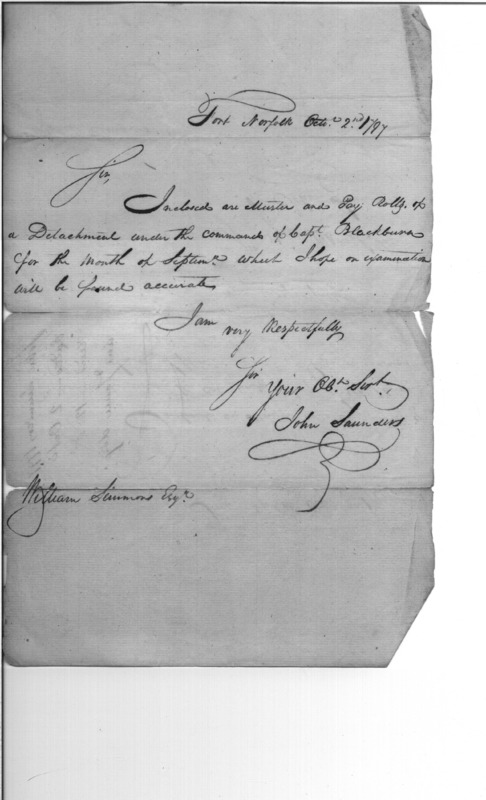 Fort Norfolk Octo.r 2.nd 1797
Sir,
Inclosed are Muster and Pay Rolls of
a Detachment under the command of Capt. Blackburn
for the Month of Septem.r which I hope on examination
will be found accurate
I am
very Respectfully
Sir
Your Ob.t Servt.
John Saunders
William Simmons Esq.r